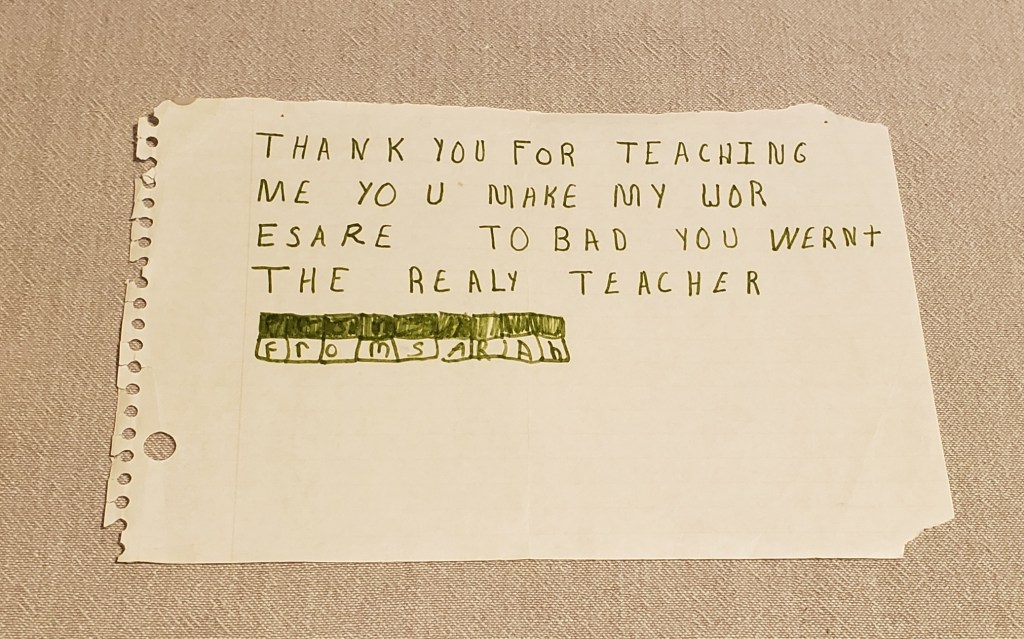 THANK YOU FOR TEACHING
ME YO U MAKE MY WOR
ESARE TO BAD YOU WERNt
THE REALY TEACHER
From SARAh